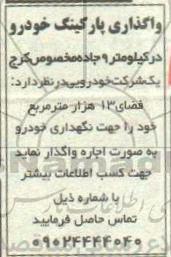 واگذاری پارکینگ خودرو
درکیلومتر۹جاده‌مخصوص‌کرج
یک‌شرکت‌خودرویی‌درنظردارد:
فضای۱۳ هزار مترمربع
خود را جهت نگهداری خودرو
به صورت اجاره واگذار نماید
جهت کسب اطلاعات بیشتر
با شماره ذیل
تماس حاصل فرمایید
۰۹۰۲۴۴۴۴۰۴۰